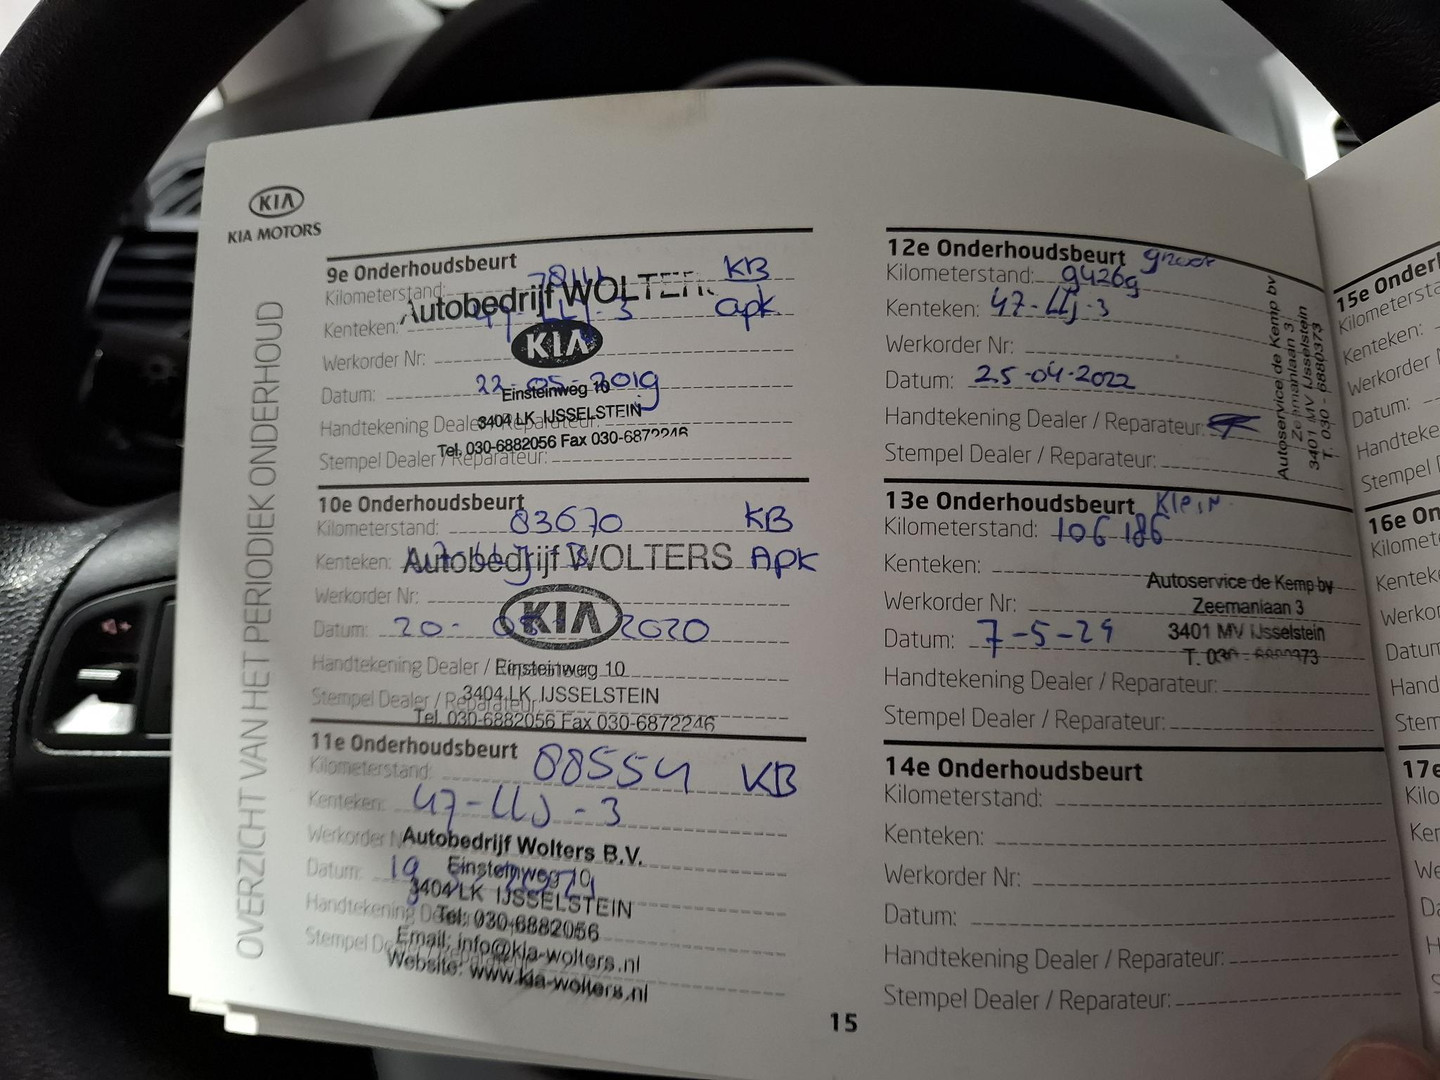 KIA
KIA MOTORS
OVERZICHT VAN HET PERIODIEK ONDERHOUD
9e Onderhoudsbeurt
Kilometerstand: KB
Autobedrijf WOLTERS
Kenteken: 3 apk
KIA
Werkorder Nr:
Datum: 22-05-2019
Einsteinweg 10
3404 LK IJSSELSTEIN
Handtekening Dealer / Reparateur:
Tel. 030-6882056 Fax 030-6872246
Stempel Dealer / Reparateur:
10e Onderhoudsbeurt
Kilometerstand: 83670 KB
Kenteken: APK
Autobedrijf WOLTERS
Werkorder Nr:
KIA
Datum: 20- 2020
Handtekening Dealer / Reparateur:
Einsteinweg 10
Stempel Dealer / Reparateur:
3404 LK IJSSELSTEIN
Tel. 030-6882056 Fax 030-6872246
11e Onderhoudsbeurt
Kilometerstand: 88554 KB
Kenteken: 47-LLJ-3
Werkorder Nr:
Autobedrijf Wolters B.V.
Datum: 19
Einsteinweg 10
3404 LK IJSSELSTEIN
Handtekening Dealer / Reparateur:
Tel: 030-6882056
Stempel Dealer / Reparateur:
Email: info@kia-wolters.nl
Website: www.kia-wolters.nl
12e Onderhoudsbeurt groot
Kilometerstand: 94269
Kenteken: 47-LLJ-3
Werkorder Nr:
Datum: 25-04-2022
Handtekening Dealer / Reparateur:
Stempel Dealer / Reparateur:
Autoservice de Kemp bv
Zeemanlaan 3
3401 MV IJsselstein
T. 030 - 6880373
13e Onderhoudsbeurt Klein
Kilometerstand: 106186
Kenteken:
Autoservice de Kemp bv
Werkorder Nr:
Zeemanlaan 3
Datum: 7-5-24
3401 MV IJsselstein
T. 030 - 6880373
Handtekening Dealer / Reparateur:
Stempel Dealer / Reparateur:
14e Onderhoudsbeurt
Kilometerstand:
Kenteken:
Werkorder Nr:
Datum:
Handtekening Dealer / Reparateur:
Stempel Dealer / Reparateur:
15
15e Onderl
Kilometersta
Kenteken:
Werkorder
Datum:
Handteke
Stempel
16e On
Kilomet
Kentek
Werko
Datum
Hand
Stem
17e
Kilo
Ker
We
Da
H
S